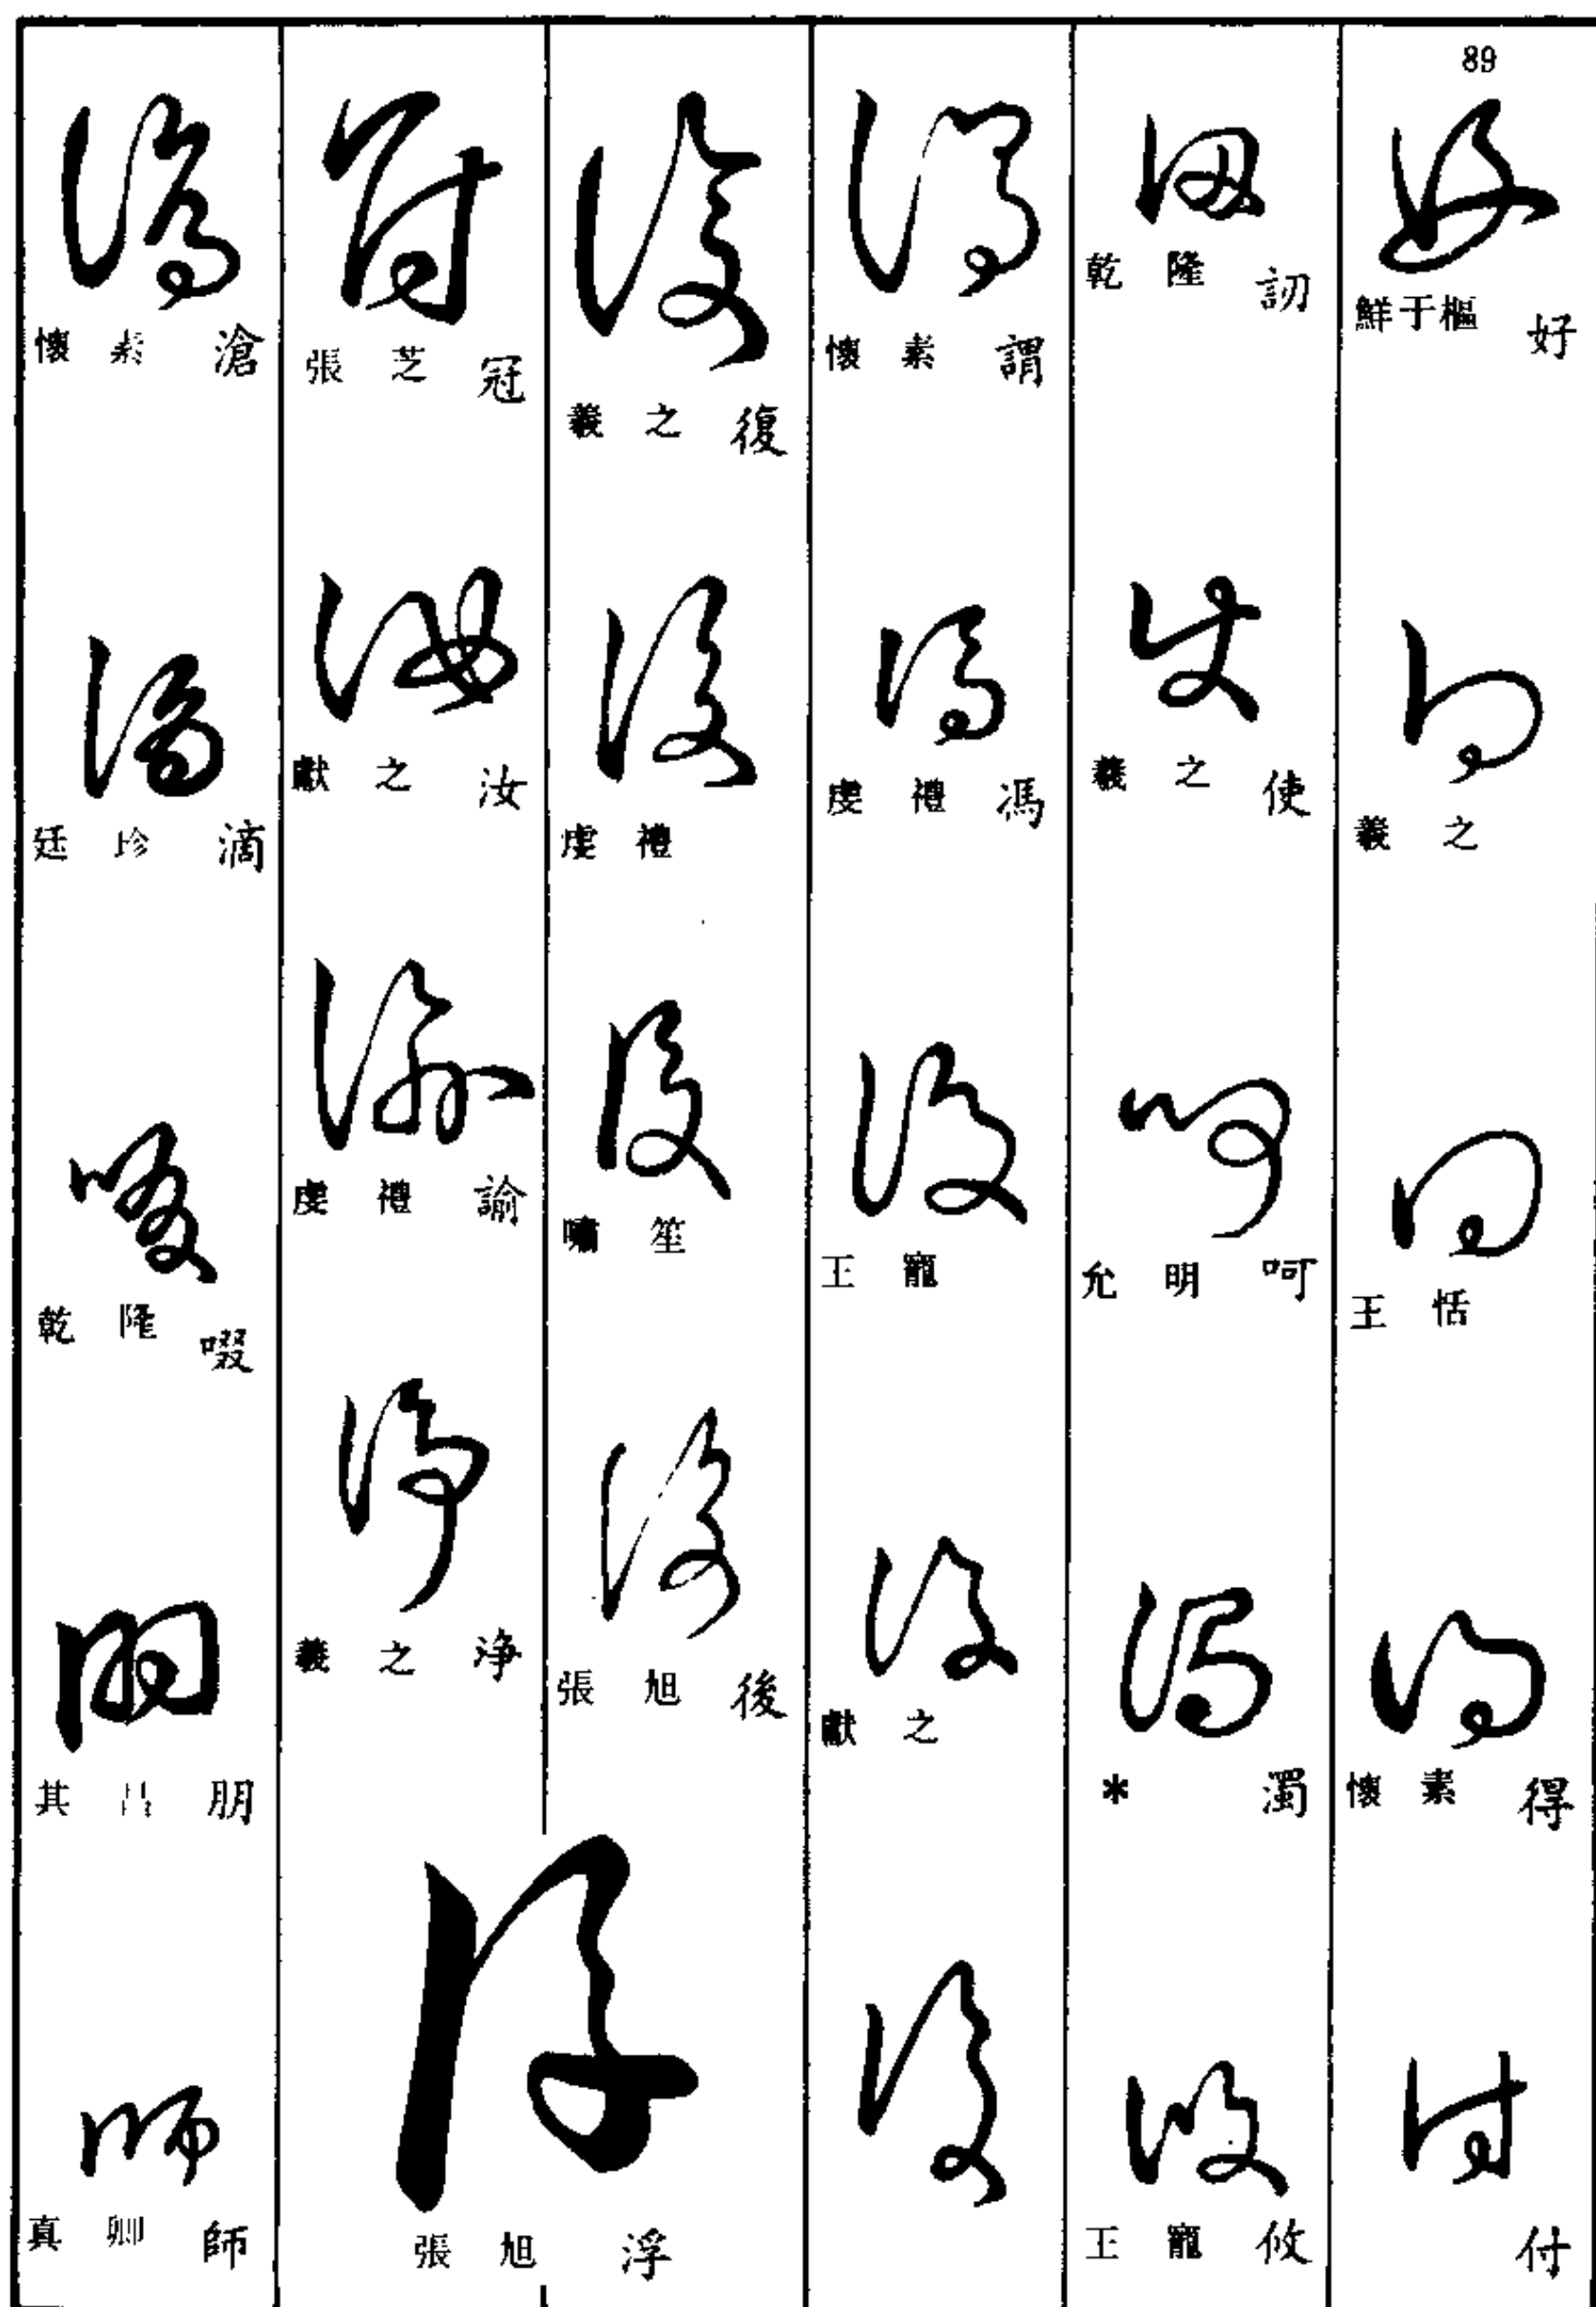 89
鮮于樞 好
羲之
王恬
懷素 得
付
乾隆 訒
羲之 使
允明 呵
* 濁
王寵 攸
懷素 謂
虔禮 馮
王寵
獻之
羲之 復
虔禮
嘯笙
張旭 後
張芝 冠
獻之 汝
虔禮 諭
羲之 净
張旭 浮
懷素 滄
廷珍 滴
乾隆 啜
其昌 朋
真卿 師